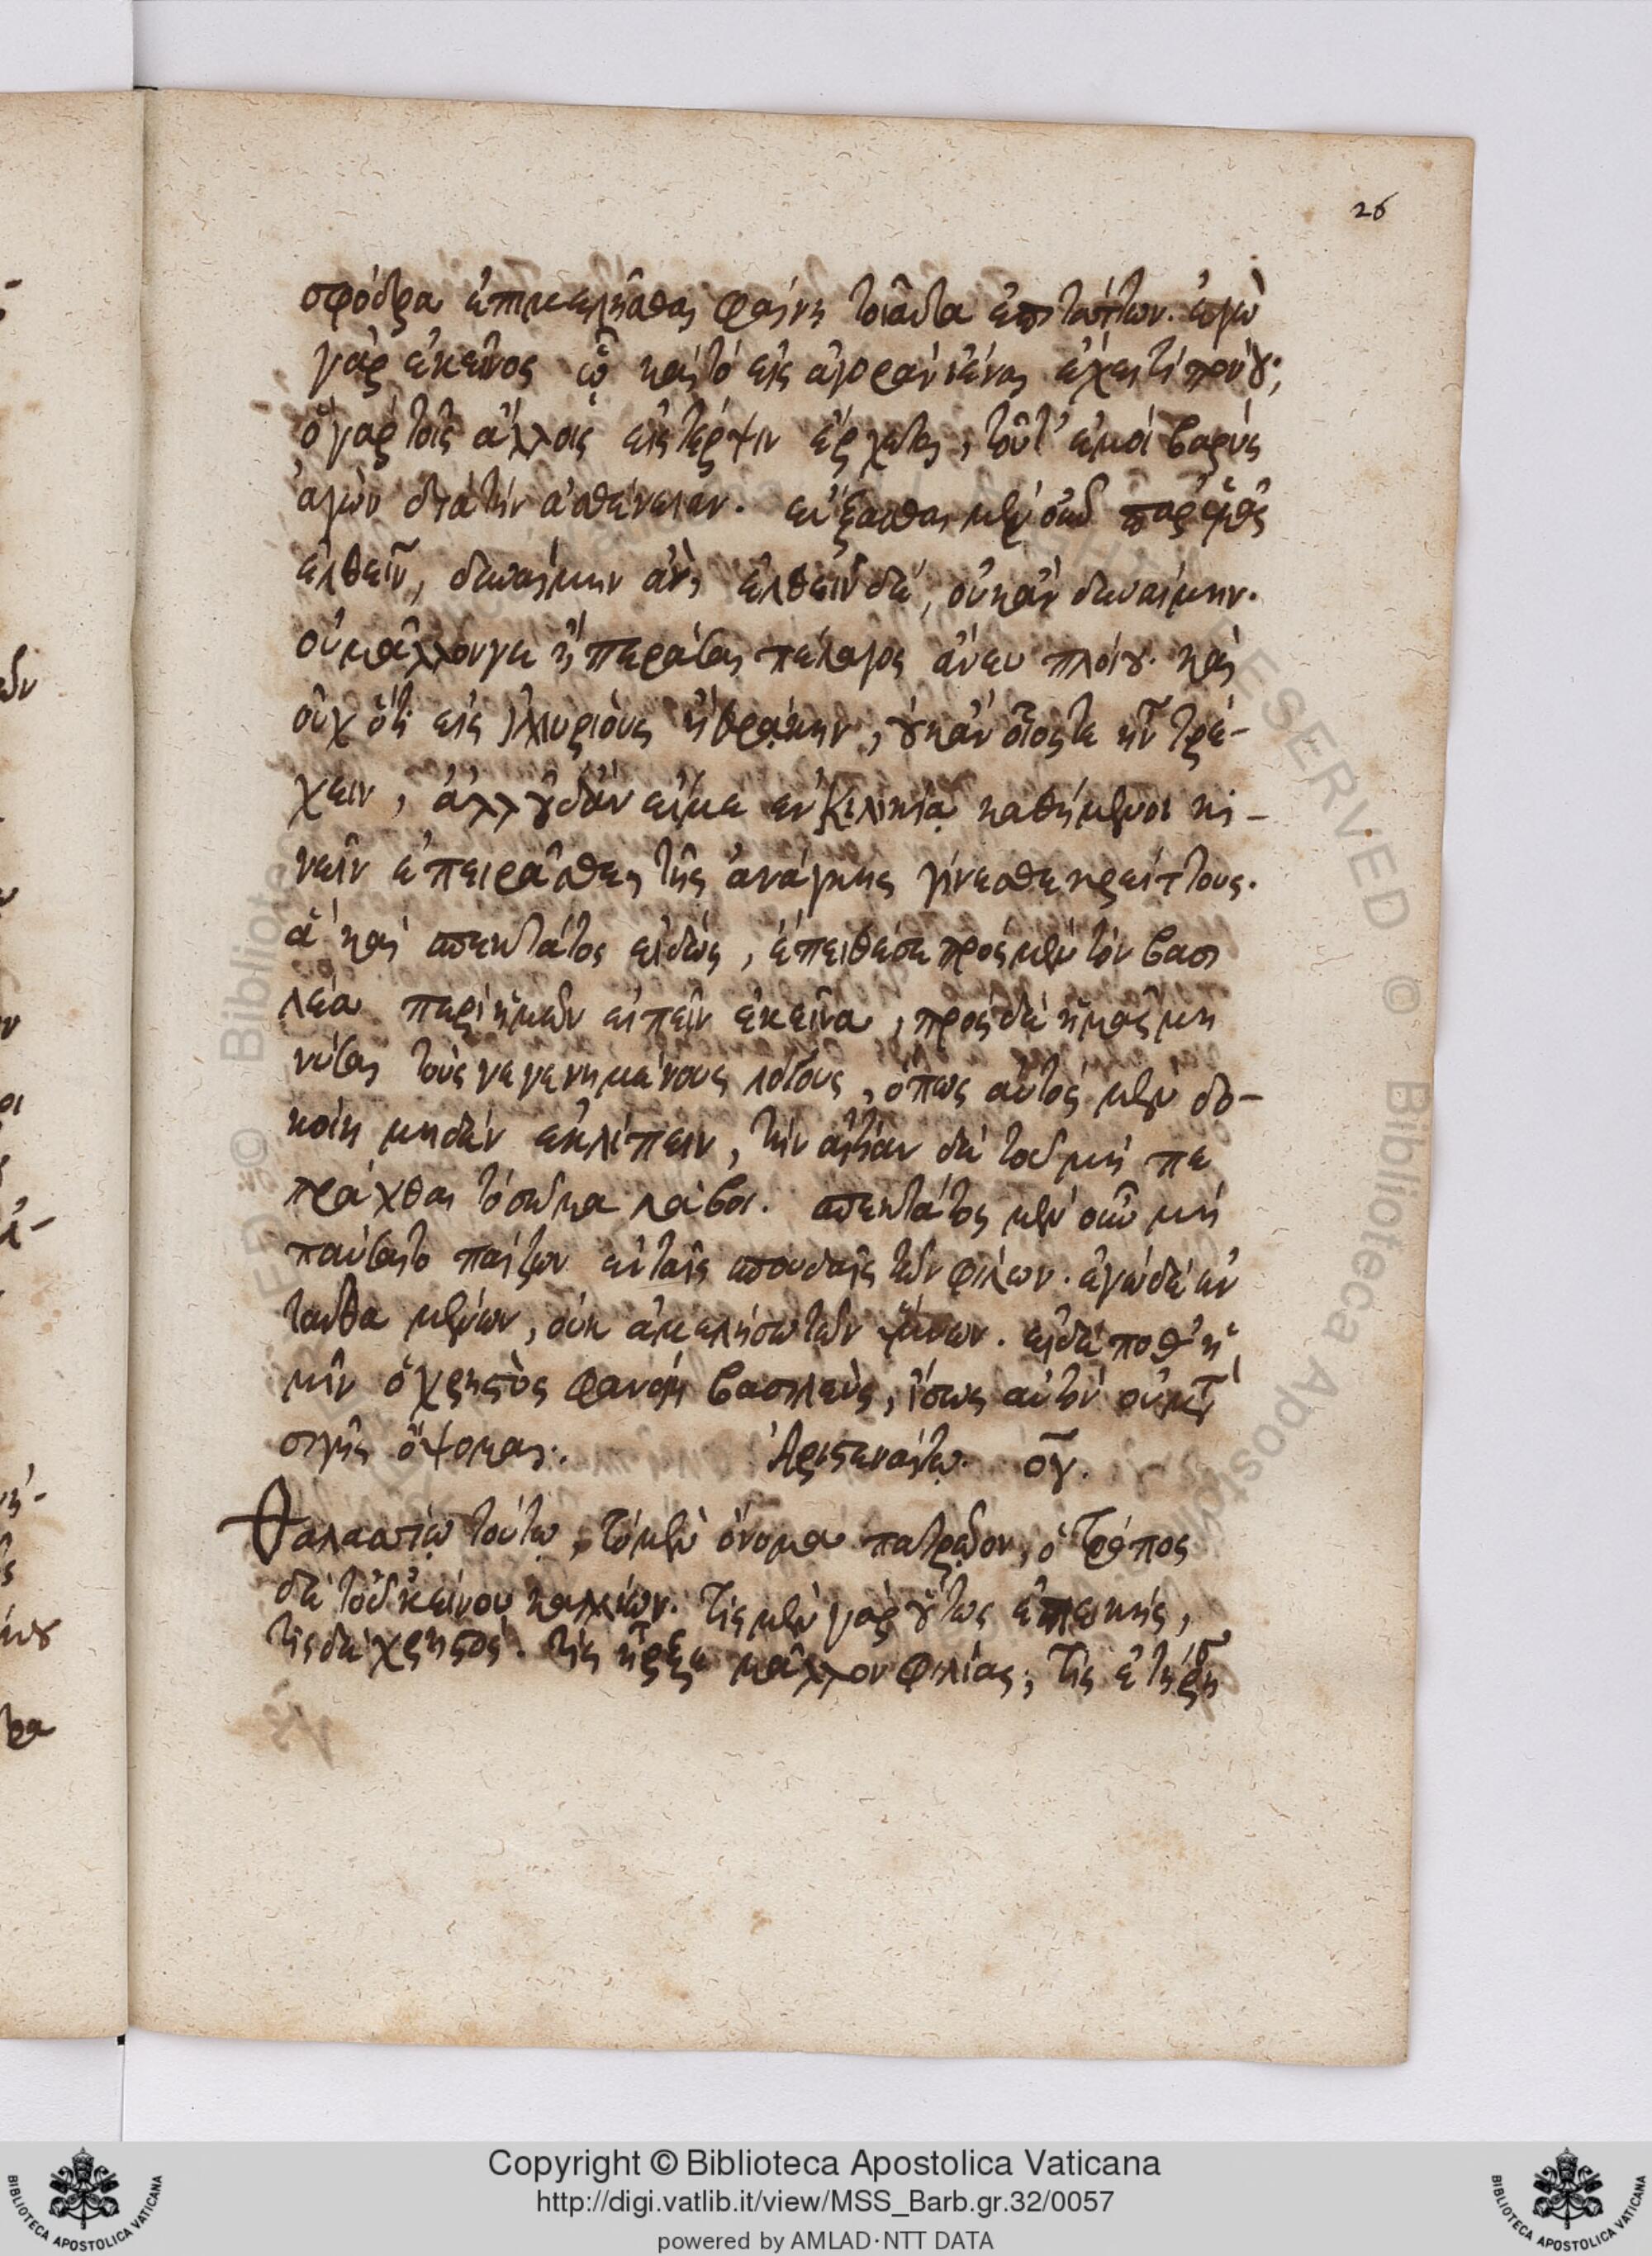 26
σφόδρα ἐπιμελεῖσθαι φαίνῃ τοιαῦτα ἐπιτάττων. ἐγὼ
γὰρ ἐκεῖνος ᾧ καὶ τὸ εἰς ἀγορὰν ἰέναι ἔχει τί πόνου;
ὃ γὰρ τοῖς ἄλλοις εἰς τέρψιν ἔρχεται, τοῦτ' ἐμοὶ βαρύς
ἀγὼν διὰ τὴν ἀσθένειαν. εὔξασθαι μὲν οὖν παρ' ὑμᾶς
ἐλθεῖν, δυναίμην ἄν, ἐλθεῖν δέ, οὐκ ἂν δυναίμην.
οὐ μᾶλλόν γε ἢ περᾶσαι πέλαγος ἄνευ πλοίου. καὶ
οὐχ ὅτι εἰς ἰλλυριοὺς ἢ θρᾴκην, οὐκ ἂν οἷός τε ἦν τρέ-
χειν, ἀλλ' οὐδ' ἂν εἴ με ἐν Κιλικίᾳ καθήμενοι κι-
νεῖν ἐπειρᾶσθε, τῆς ἀνάγκης γίνεσθε κρείττους.
ἃ καὶ σπεκτάτος εἰδώς, ἐπείθεσε πρὸς μὲν τὸν βασι
λέα περὶ ἡμῶν εἰπεῖν ἐκεῖνα, πρὸς δὲ ἡμᾶς μη
νύσαι τοὺς γεγενημένους λόγους, ὅπως αὐτὸς μὲν δο-
κοίη μηδὲν ἐκλίπειν, τὴν αἰτίαν δὲ τοῦ μὴ πε
πράχθαι τὸ σῶμα λάβοι. σπεκτάτος μὲν οὖν μὴ
παύσαιτο παίζων ἐν ταῖς σπουδαῖς τῶν φίλων. ἐγὼ δὲ ἐν
ταῦθα μένων, οὐκ ἀμελήσω τῶν ὕμνων. εἰ δέ ποθ' ἡ
μῖν ὁ χρηστὸς φανείη βασιλεύς, ἴσως αὐτὸν οὐ μετὰ
σιγῆς ὄψομαι. Ἀρισταινέτῳ. ογ.
Θαλασσίῳ τούτῳ, τὸ μὲν ὄνομα πατρῷον, ὁ τρόπος
δὲ τοῦ 'κείνου καλλίων. τίς μὲν γὰρ οὕτως ἐπιεικής,
τίς δὲ χρηστός. τίς ἦρξε μᾶλλον φιλίας; τίς ἐτήρη